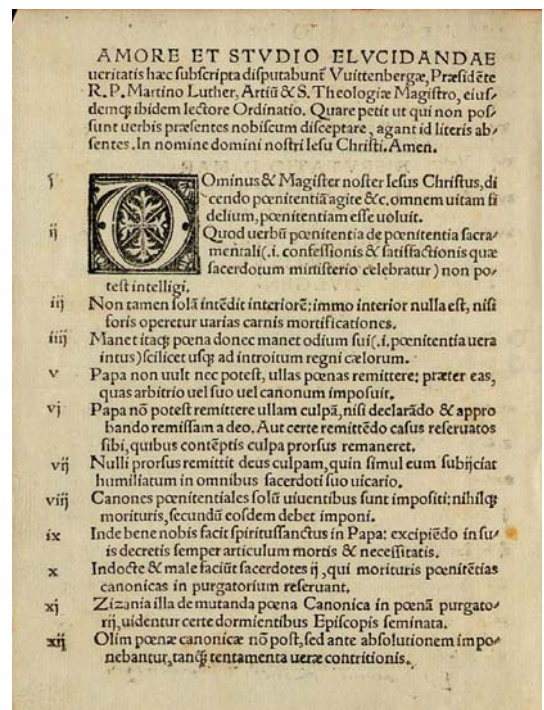 AMORE ET STVDIO ELVCIDANDAE
ueritatis hæc subscripta disputabunť Vuittenbergæ, Præsidēte
R. P. Martino Luther, Artiū & S. Theologiæ Magistro, eius/
demq; ibidem lectore Ordinatio. Quare petit ut qui non pos/
sunt uerbis præsentes nobiscum disceptare, agant id literis ab/
sentes. In nomine domini nostri Iesu Christi. Amen.
j DOminus & Magister noster Iesus Christus, di
cendo pœnitentiā agite &c. omnem uitam fi
delium, pœnitentiam esse uoluit.
ij Quod uerbū pœnitentia de pœnitentia sacra/
mentali (.i. confessionis & satisfactionis quæ
sacerdotum ministerio celebratur) non po/
test intelligi.
iij Non tamen solā intēdit interiorē: immo interior nulla est, nisi
foris operetur uarias carnis mortificationes.
iiij Manet itaq; pœna donec manet odium sui (.i. pœnitentia uera
intus) scilicet usq; ad introitum regni cælorum.
v Papa non uult nec potest, ullas pœnas remittere: præter eas,
quas arbitrio uel suo uel canonum imposuit.
vj Papa nō potest remittere ullam culpā, nisi declarādo & appro
bando remissam a deo. Aut certe remittēdo casus reseruatos
sibi, quibus contēptis culpa prorsus remaneret.
vij Nulli prorsus remittit deus culpam, quin simul eum subijciat
humiliatum in omnibus sacerdoti suo uicario.
viij Canones pœnitentiales solū uiuentibus sunt impositi: nihilq;
morituris, secundū eosdem debet imponi.
ix Inde bene nobis facit spiritussanctus in Papa: excipiēdo in su/
is decretis semper articulum mortis & necessitatis.
x Indocte & male faciūt sacerdotes ij, qui morituris pœnitētias
canonicas in purgatorium reseruant.
xj Zizania illa de mutanda pœna Canonica in pœnā purgato/
rij, uidentur certe dormientibus Episcopis seminata.
xij Olim pœnæ canonicæ nō post, sed ante absolutionem impo/
nebantur, tanq̄; tentamenta ueræ contritionis.